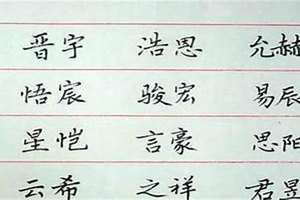 晋宇 浩恩 允赫
悟宸 骏宏 易辰
星恺 言豪 思阳
云希 之祥 君昱